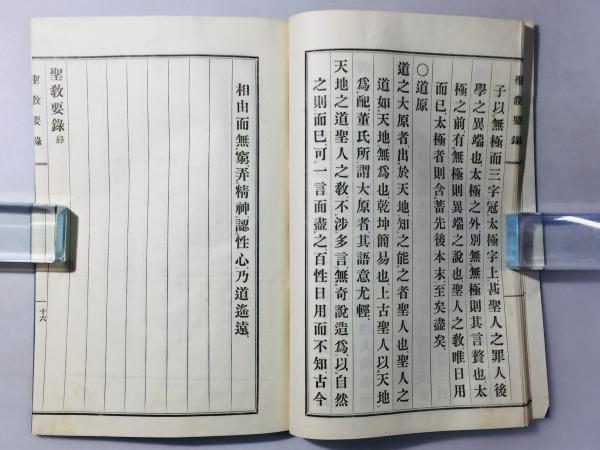 聖教要錄
子以無極而三字冠太極字上甚聖人之罪人後
學之異端也太極之外別無無極則其言贅也太
極之前有無極則異端之說也聖人之敎唯日用
而已太極者則含蓄先後本末至矣盡矣
〇道原
道之大原者出於天地知之能之者聖人也聖人之
道如天地無爲也乾坤簡易也上古聖人以天地
爲配董氏所謂大原者其語意尤輕
天地之道聖人之敎不涉多言無奇說造爲以自然
之則而已可一言而盡之百性日用而不知古今
相由而無窮弄精神認性心乃道遙遠
聖敎要錄 終
聖敎要錄
十六